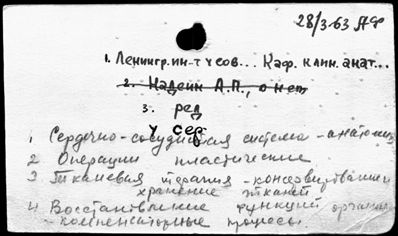 28/3-63 АФ
1. Ленингр. ин-т усов... Каф. клин. анат...
2. Надеин А.П., о нем
3. ред
4 сер.
1 Сердечно-сосудистая система - анатомия
2 Операции пластические
3 Тканевая терапия - консервирование и
хранение тканей
4 Восстановление функций организма
- компенсаторные процессы